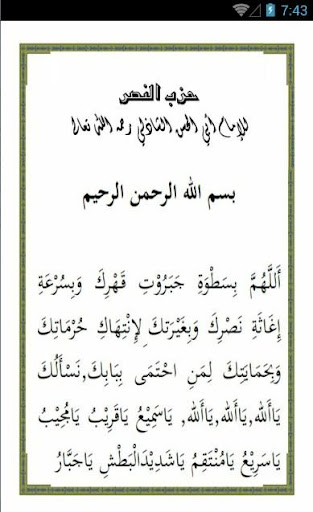 7:43
حزب النصر
للإمام أبي الحسن الشاذلي رحمه الله تعالى
بسم الله الرحمن الرحيم
أَللَّهُمَّ بِسَطْوَةِ جَبَرُوْتِ قَهْرِكَ وَبِسُرْعَةِ
إِغَاثَةِ نَصْرِكَ وَبِغَيْرَتِكَ لِإِنْتِهَاكِ حُرُمَاتِكَ
وَبِحِمَايَتِكَ لِمَنِ احْتَمَى بِبَابِكَ,نَسْأَلُكَ
يَاأَلله,يَاأَلله,يَاأَلله, يَاسَمِيْعُ يَاقَرِيْبُ يَامُجِيْبُ
يَاسَرِيْعُ يَامُنْتَقِمُ يَاشَدِيْدَالْبَطْشِ يَاجَبَّارُ